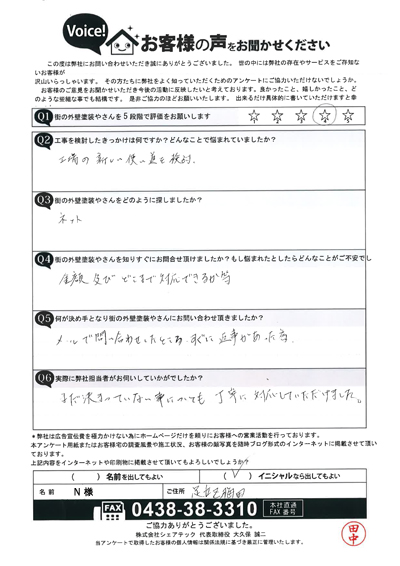 Voice! お客様の声をお聞かせください
この度は弊社にお問い合わせいただき誠にありがとうございました。 世の中には弊社の存在やサービスをご存知ないお客様が
沢山いらっしゃいます。 その方たちに弊社をよく知っていただくためのアンケートにご協力いただけないでしょうか。
お客様のご意見をお聞かせいただき今後の活動に反映したいと考えております。良かったこと、嬉しかったこと、ど
のような些細な事でも結構です。 是非ご協力のほどお願いいたします。 出来るだけ具体的に書いていただけますと幸
Q1 街の外壁塗装やさんを5段階で評価をお願いします ☆ ☆ ☆ ☆ ☆
Q2 工事を検討したきっかけは何ですか?どんなことで悩まれていましたか?
工場の新しい使い道を検討.
Q3 街の外壁塗装やさんをどのように探しましたか?
ネット
Q4 街の外壁塗装やさんを知りすぐにお問合せ頂けましたか?もし悩まれたとしたらどんなことがご不安でし
金額及びどこまで対応できるか等
Q5 何が決め手となり街の外壁塗装やさんにお問い合わせ頂きましたか?
メールで問い合わせしたところ、すぐに返事があった為.
Q6 実際に弊社担当者がお伺いしていかがでしたか?
まだ決まっていない事についても丁寧に対応していただけました。
*弊社は広告宣伝費を極力かけない為にホームページだけを頼りにお客様への営業活動を行っております。
本アンケート用紙またはお客様宅の調査風景や施工状況、お客様の顔写真を随時ブログ形式のインターネットに掲載させて頂い
ております。
上記内容をインターネットや印刷物に掲載させて頂いてもよろしいでしょうか?
( )名前を出してもよい (✓)イニシャルなら出してもよい
名 前 N 様 ご住所
FAX 0438-38-3310 本社直通 FAX 番号
ご協力ありがとうございました。
株式会社シェアテック 代表取締役 大久保 誠二
当アンケートで取得したお客様の個人情報は関係法規に基づき厳正に管理いたします。
田中